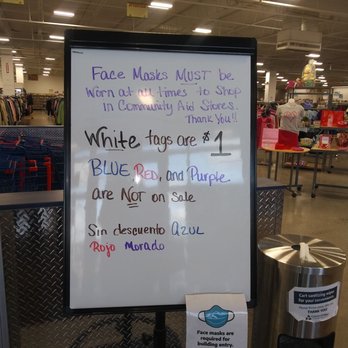 Face Masks MUST be
Worn at all times to Shop
in Community Aid Stores.
Thank You!!
White tags are $1
BLUE Red, and Purple
are NOT on Sale
Sin descuento AZUL
Rojo Morado
Face masks are
required for
building entry.
Cart sanitizing wipes
THANK YOU